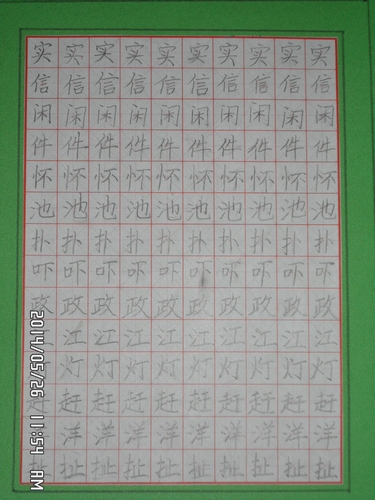 实实实实实实实实实实
信信信信信信信信信信
闲闲闲闲闲闲闲闲闲闲
件件件件件件件件件件
怀怀怀怀怀怀怀怀怀怀
池池池池池池池池池池
扑扑扑扑扑扑扑扑扑扑
吓吓吓吓吓吓吓吓吓吓
政政政政政政政政政政
江江江江江江江江江江
灯灯灯灯灯灯灯灯灯灯
赶赶赶赶赶赶赶赶赶赶
洋洋洋洋洋洋洋洋洋洋
扯扯扯扯扯扯扯扯扯扯
2014/05/26 11:54 AM